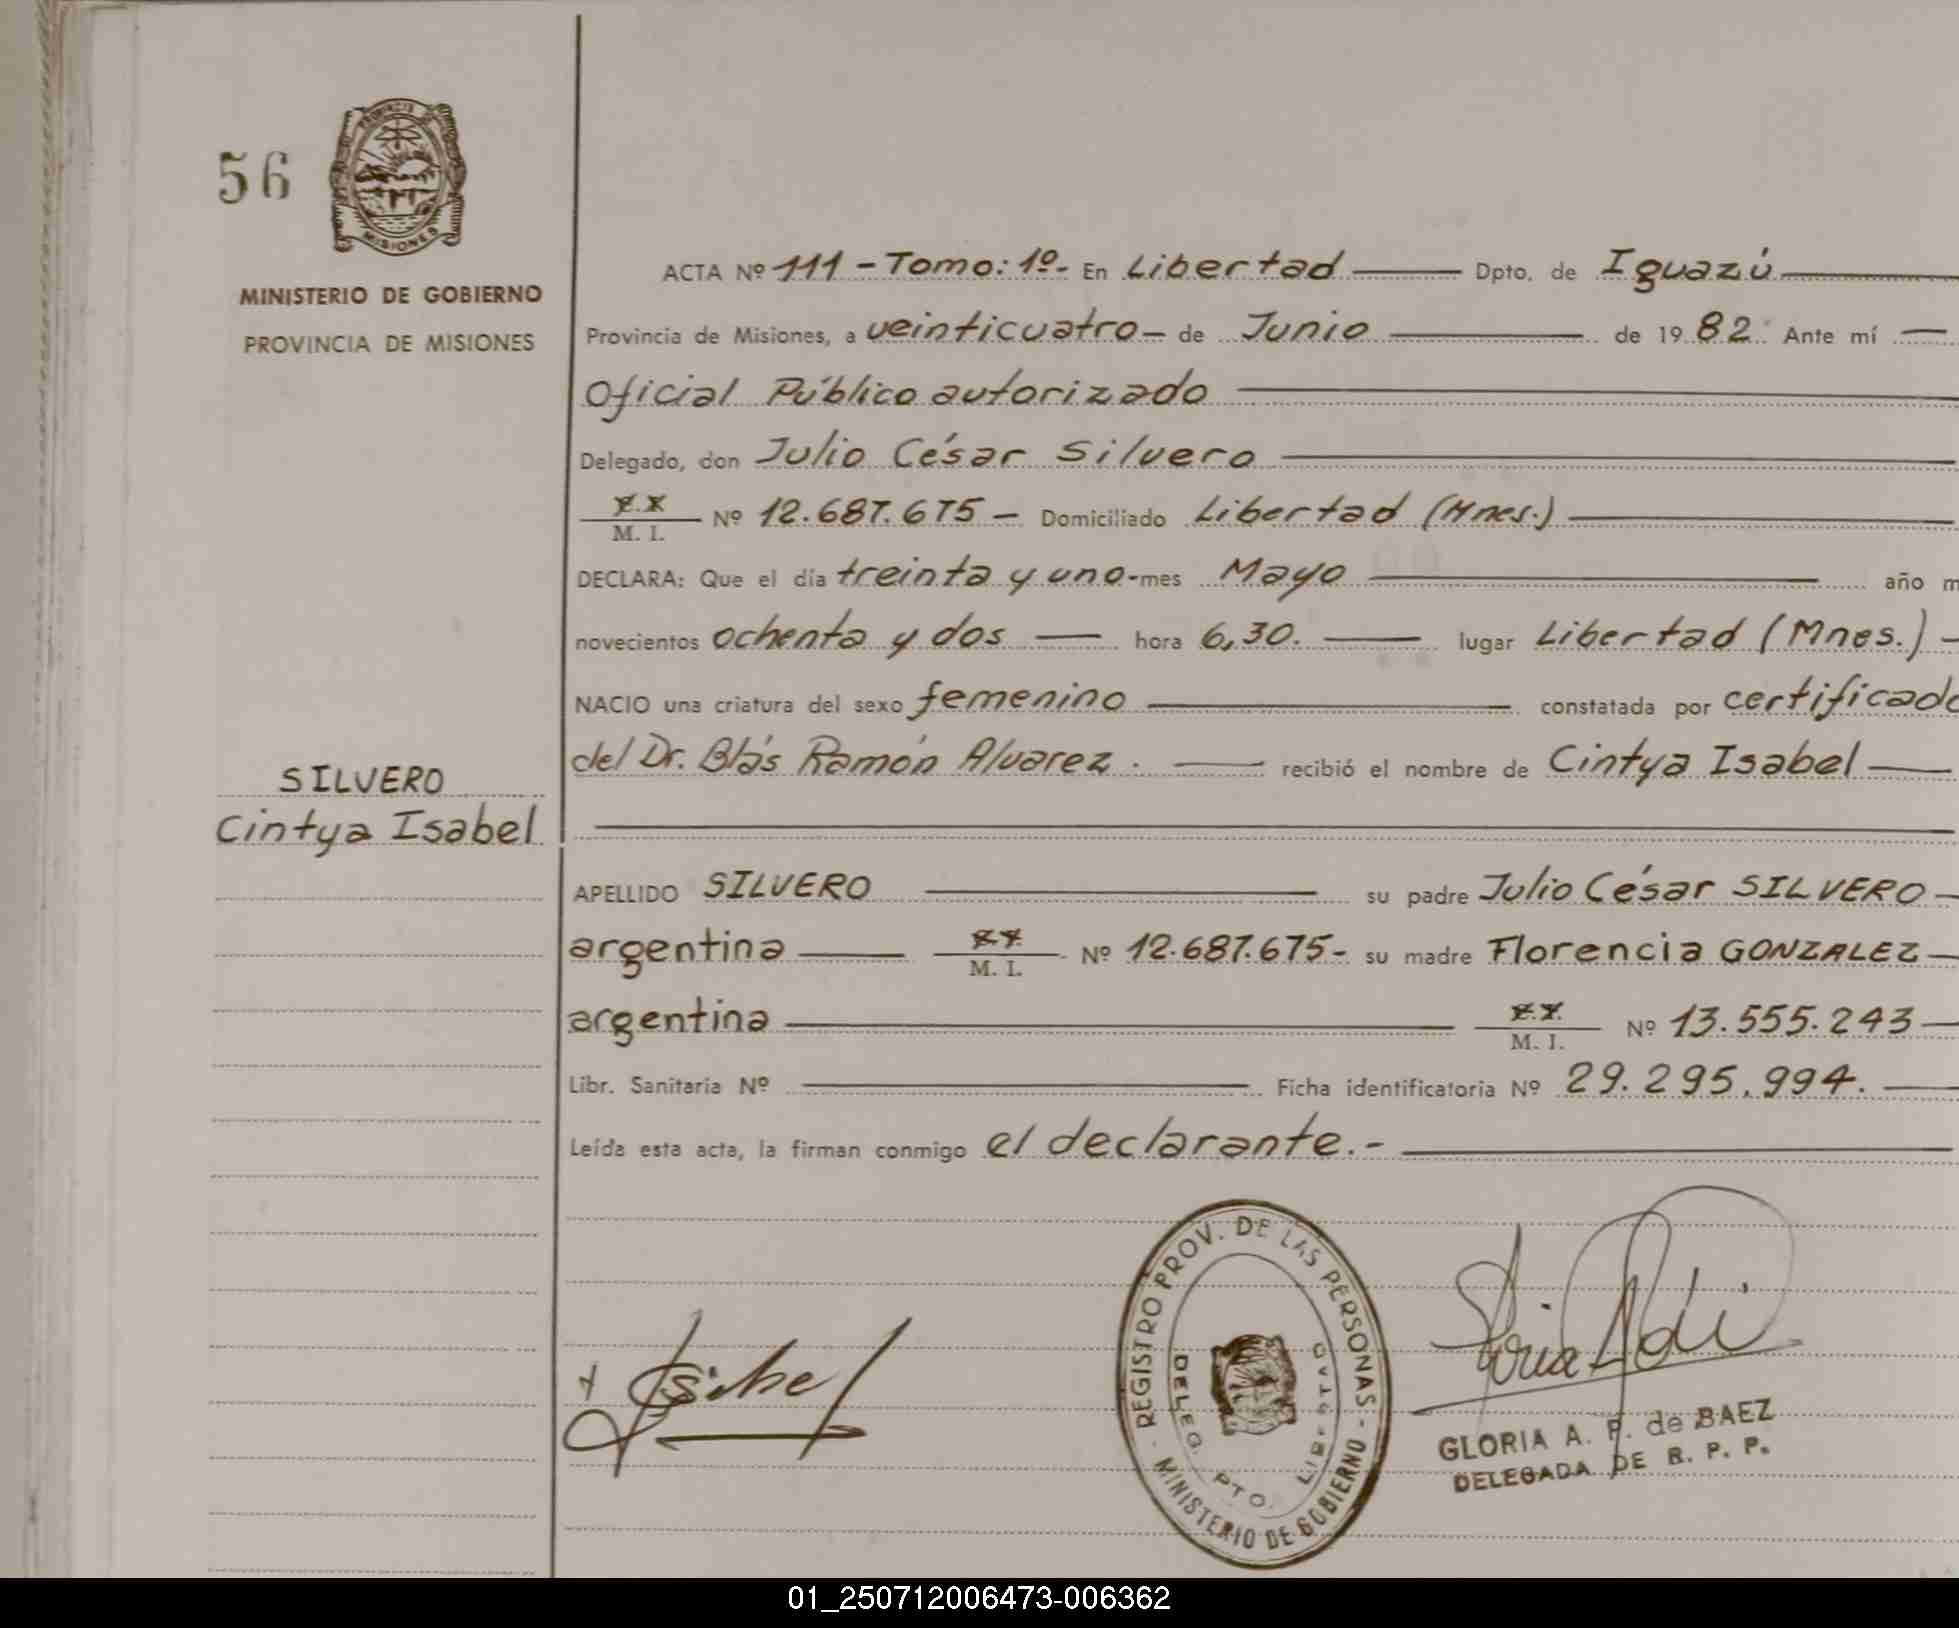 56
PROVINCIA
MISIONES
MINISTERIO DE GOBIERNO
PROVINCIA DE MISIONES
ACTA Nº 111 - Tomo: 1º- En Libertad Dpto. de Iguazú
Provincia de Misiones, a veinticuatro- de Junio de 1982. Ante mí
Oficial Público autorizado
Delegado, don Julio César Silvero
M. I. Nº 12.687.675 - Domiciliado Libertad (Mnes.)
DECLARA: Que el día treinta y uno-mes Mayo año m
novecientos ochenta y dos hora 6,30. lugar Libertad (Mnes.)
NACIO una criatura del sexo femenino constatada por certificado
del Dr. Blás Ramón Alvarez. recibió el nombre de Cintya Isabel
SILVERO
Cintya Isabel
APELLIDO SILVERO su padre Julio César SILVERO
argentina M. I. Nº 12.687.675- su madre Florencia GONZALEZ
argentina M. I. Nº 13.555.243
Libr. Sanitaria Nº Ficha identificatoria Nº 29.295.994.
Leída esta acta, la firman conmigo el declarante.-
REGISTRO PROV. DE LAS PERSONAS - MINISTERIO DE GOBIERNO -
DELEG. PTO. LIBERTAD
GLORIA A. P. de BAEZ
DELEGADA DE R. P. P.
01_250712006473-006362